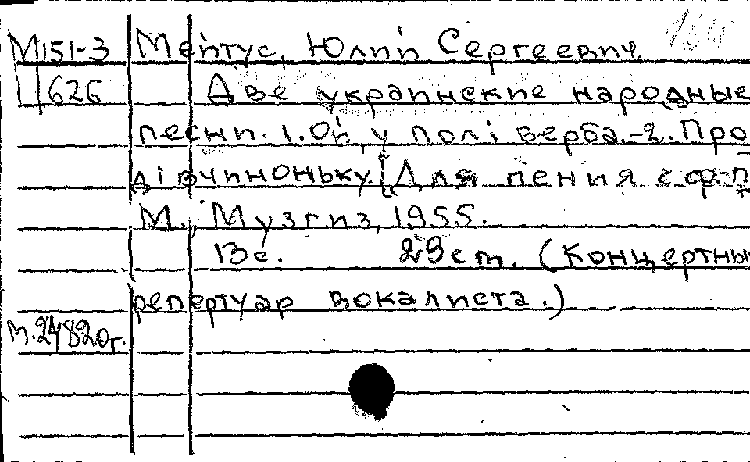 М151-3 Мейтус, Юлий Сергеевич.
Ц626 Две украинские народные
песни. 1. Ой, у полі верба.-2. Про
дівчиноньку. [Для пения с ф-п
М., Музгиз, 1955.
13с. 29см. (Концертны
репертуар вокалиста.)
м.24820г.